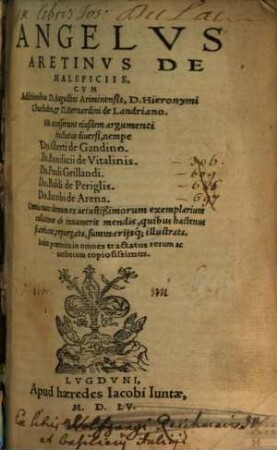 Ex libris Ios:
ANGELVS
ARETINVS DE
MALEFICIIS.
CVM
Additionibus D. Augustini Ariminensis, D. Hieronymi
Chuchalon, & D. Bernardini de Landriano.
His accesserunt eiusdem argumenti
tractatus diuersi, nempe
D. Alberti de Gandino.
D. Bonifacii de Vitalinis. - 306.
D. Pauli Grillandi.
D. Baldi de Periglis.
D. Iacobi de Arena. - 697
Omnia nunc demum ex vetustissimorum exemplarium
collatione ab innumeris mendis, quibus hactenus
scatebant, repurgata, summariisq; illustrata.
Index præterea in omnes tractatus rerum ac
verborum copiosissimus.
LVGDVNI,
Apud hæredes Iacobi Iuntæ,
M. D. LV.
Ex libris Wolffgangi
et